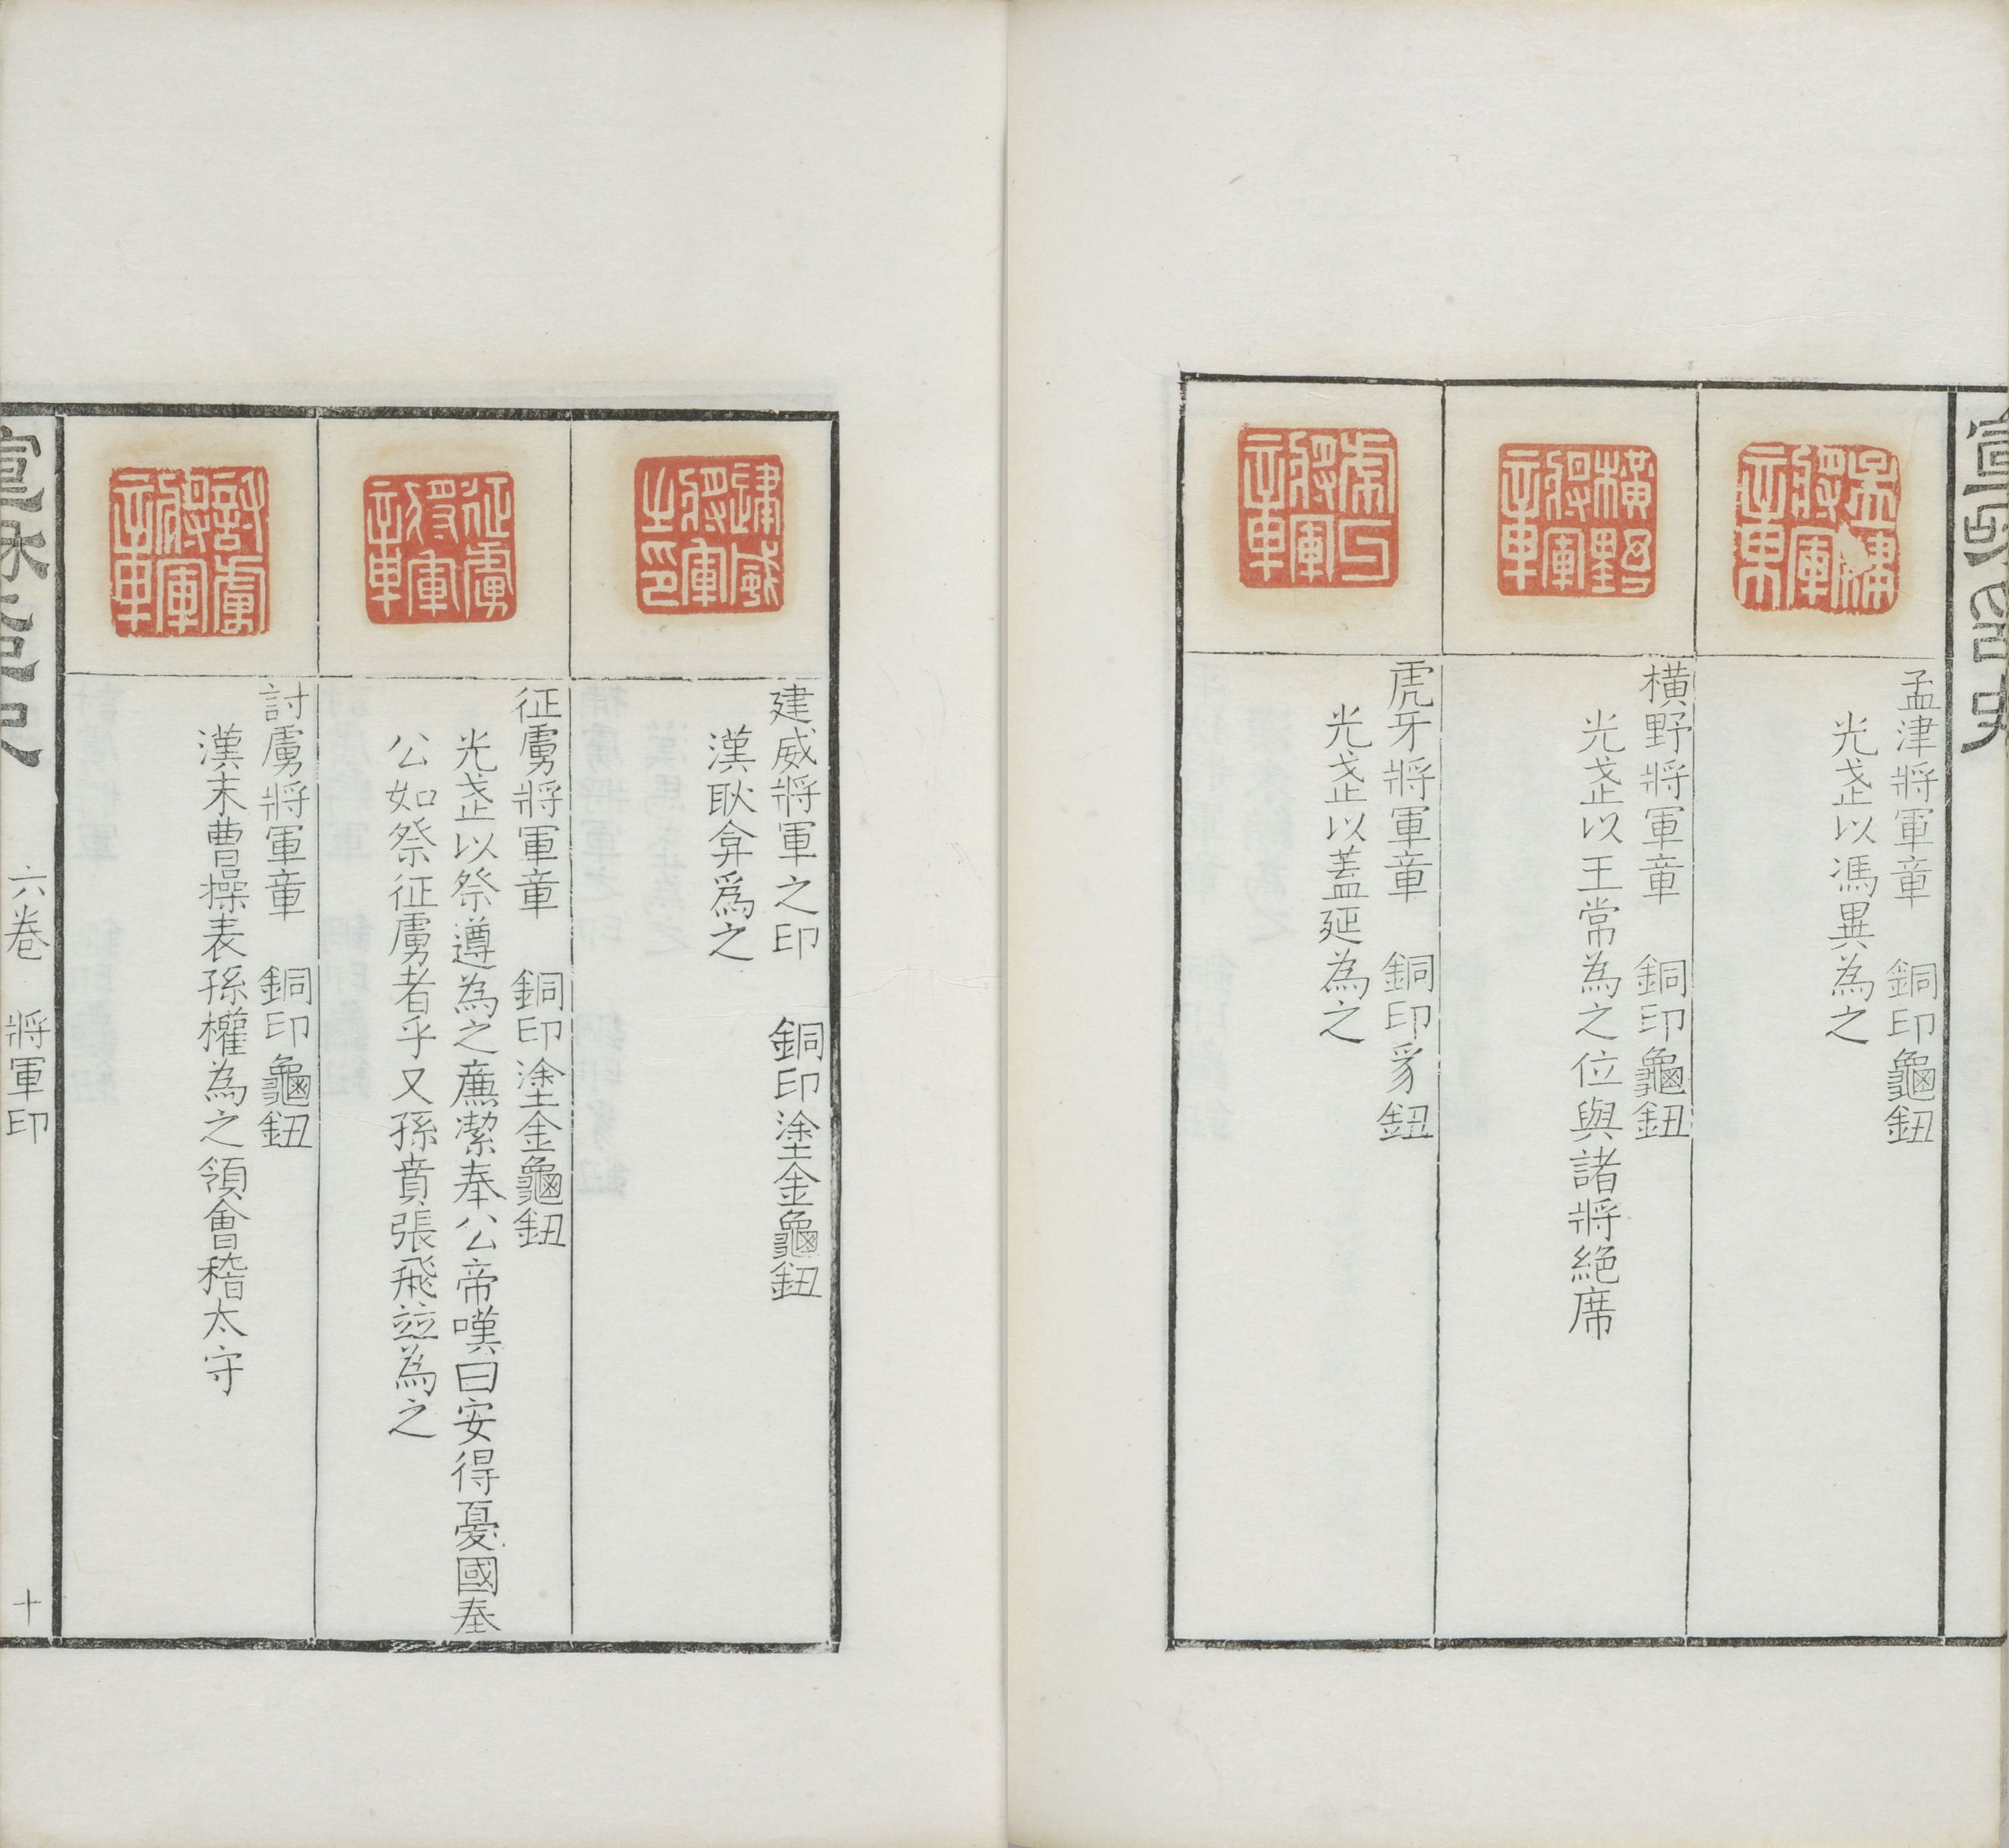 孟津將軍章
孟津將軍章　銅印龜鈕
光武以馮異為之
橫野將軍章
橫野將軍章　銅印龜鈕
光武以王常為之位與諸將絶席
虎牙將軍章
虎牙將軍章　銅印豸鈕
光武以蓋延為之
建威將軍之印
建威將軍之印　銅印塗金龜鈕
漢耿弇爲之
征虜將軍章
征虜將軍章　銅印塗金龜鈕
光武以祭遵為之廉潔奉公帝嘆曰安得憂國奉
公如祭征虜者乎又孫賁張飛竝為之
討虜將軍章
討虜將軍章　銅印龜鈕
漢末曹操表孫權為之領會稽太守
六卷　將軍印
十